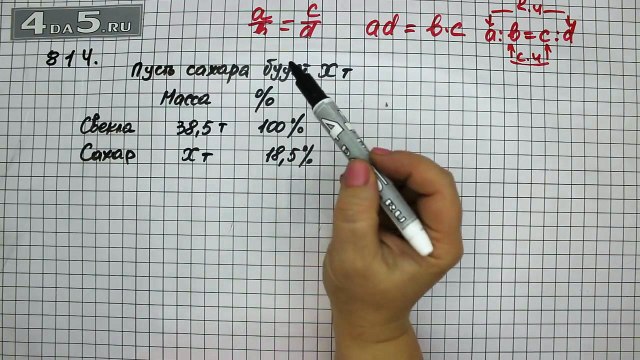 4DA5.RU
a/b = c/d
ad = b·c
к.ч
a:b=c:d
с.ч
814.
Пусть сахара будет X т
Масса %
Свекла 38,5 т 100%
Сахар X т 18,5%